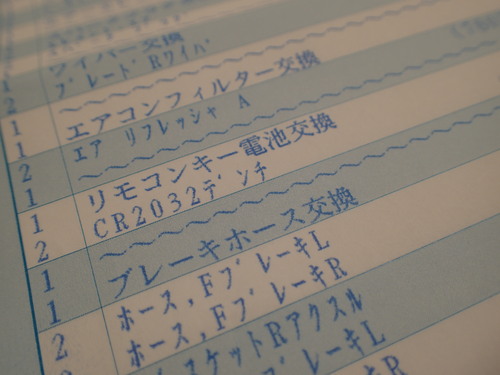 ワイパー交換
1 ブレードRワイパ
2 〜〜〜〜〜〜〜〜
1 エアコンフィルター交換
1 エア リフレッシャ A
2 〜〜〜〜〜〜〜〜
1 リモコンキー電池交換
1 CR2032デンチ
2 〜〜〜〜〜〜〜〜
1 ブレーキホース交換
1 ホース,FブレーキL
2 ホース,FブレーキR
スケットRアクスル
ブレーキL
キR